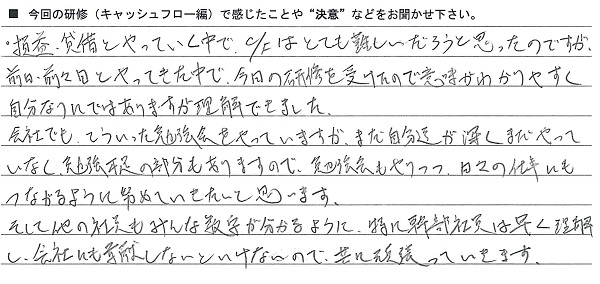 ■ 今回の研修（キャッシュフロー編）で感じたことや“決意”などをお聞かせ下さい。
・損益、貸借とやっていく中で、C/Fはとても難しいだろうと思ったのですが、
前日・前々日とやってきた中で、今日の研修を受けたので意味がわかりやすく
自分なりにではありますが理解できました。
会社でも、こういった勉強会をやっていますが、まだ自分達が深くまだやって
いなく、勉強不足の部分もありますので、勉強会もやりつつ、日々の仕事にも
つながるように努めていきたいと思います。
そして他の社員もみんな数字が分かるように、特に幹部社員は早く理解
し、会社にも貢献しないといけないので、共に頑張っていきます。